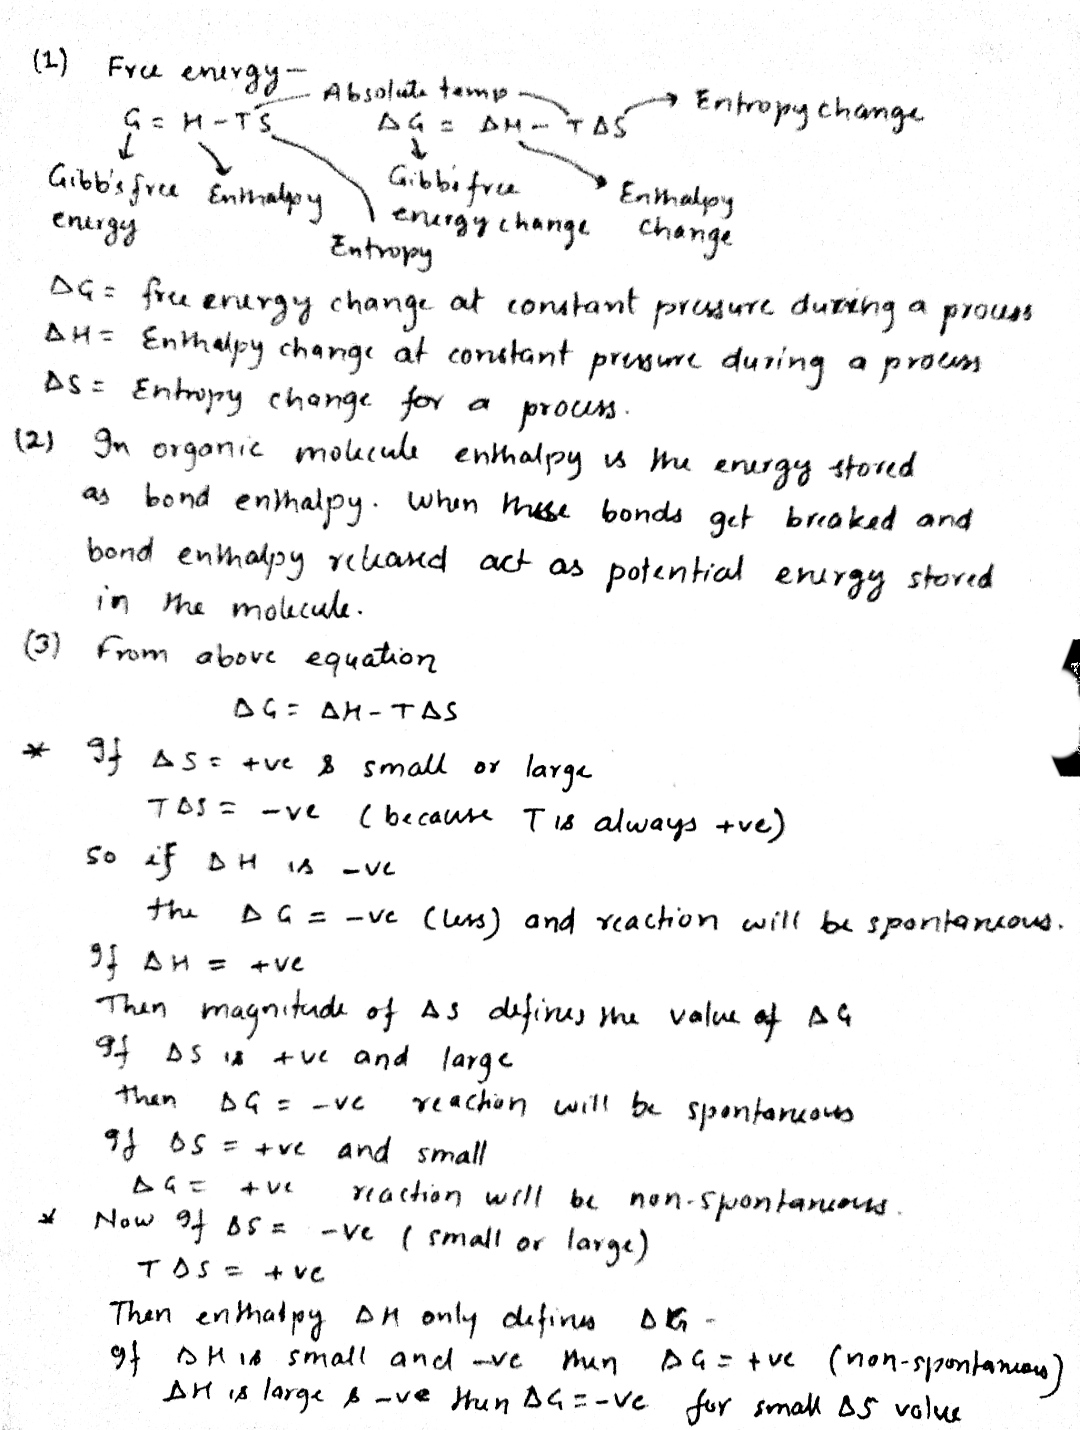 (1) Free energy-
Absolute temp
G = H - TS
ΔG = ΔH - TΔS
Entropy change
Gibb's free energy
Enthalpy
Entropy
Gibbs free energy change
Enthalpy change
ΔG = free energy change at constant pressure during a process
ΔH = Enthalpy change at constant pressure during a process
ΔS = Entropy change for a process.
(2) In organic molecule enthalpy is the energy stored
as bond enthalpy. When these bonds get breaked and
bond enthalpy released act as potential energy stored
in the molecule.
(3) From above equation
ΔG = ΔH - TΔS
* If ΔS = +ve & small or large
TΔS = -ve (because T is always +ve)
So if ΔH is -ve
the ΔG = -ve (less) and reaction will be spontaneous.
If ΔH = +ve
Then magnitude of ΔS defines the value of ΔG
If ΔS is +ve and large
then ΔG = -ve reaction will be spontaneous
If ΔS = +ve and small
ΔG = +ve reaction will be non-spontaneous.
* Now If ΔS = -ve (small or large)
TΔS = +ve
Then enthalpy ΔH only defines ΔG -
If ΔH is small and -ve then ΔG = +ve (non-spontaneous)
ΔH is large & -ve then ΔG = -ve for small ΔS value